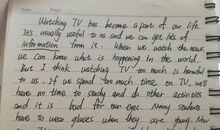 Date: Page:
Watching TV has become a part of our life.
It's usually useful to us and we can get lots of
information from it. When we watch the news
we can know what is happening in the world.
But I think watching TV too much is harmful
to us. If we spend too much time on TV, we'll
have no time to study and do other activities
and it is bad for our eyes. Many students
have to wear glasses when they are young. Now